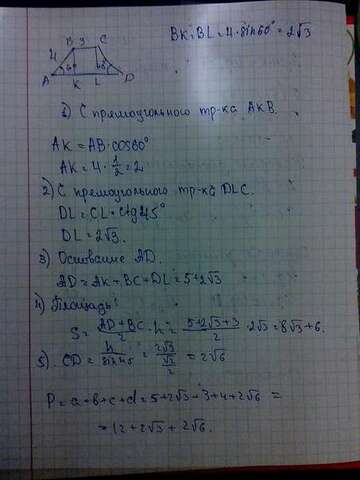 BK = BL = 4 · sin60° = 2√3
B 3 C
4
A K L D
1) С прямоугольного тр-ка AKB.
AK = AB · cos60°
AK = 4 · 1/2 = 2
2) С прямоугольного тр-ка DLC.
DL = CL · ctg45°
DL = 2√3.
3) Основание AD.
AD = AK + BC + DL = 5 + 2√3
4) Площадь:
S = (AD + BC)/2 · h = (5 + 2√3 + 3)/2 · 2√3 = 8√3 + 6.
5). CD = h/sin45 = 2√3/(√2/2) = 2√6
P = a + b + c + d = 5 + 2√3 + 3 + 4 + 2√6 =
= 12 + 2√3 + 2√6.